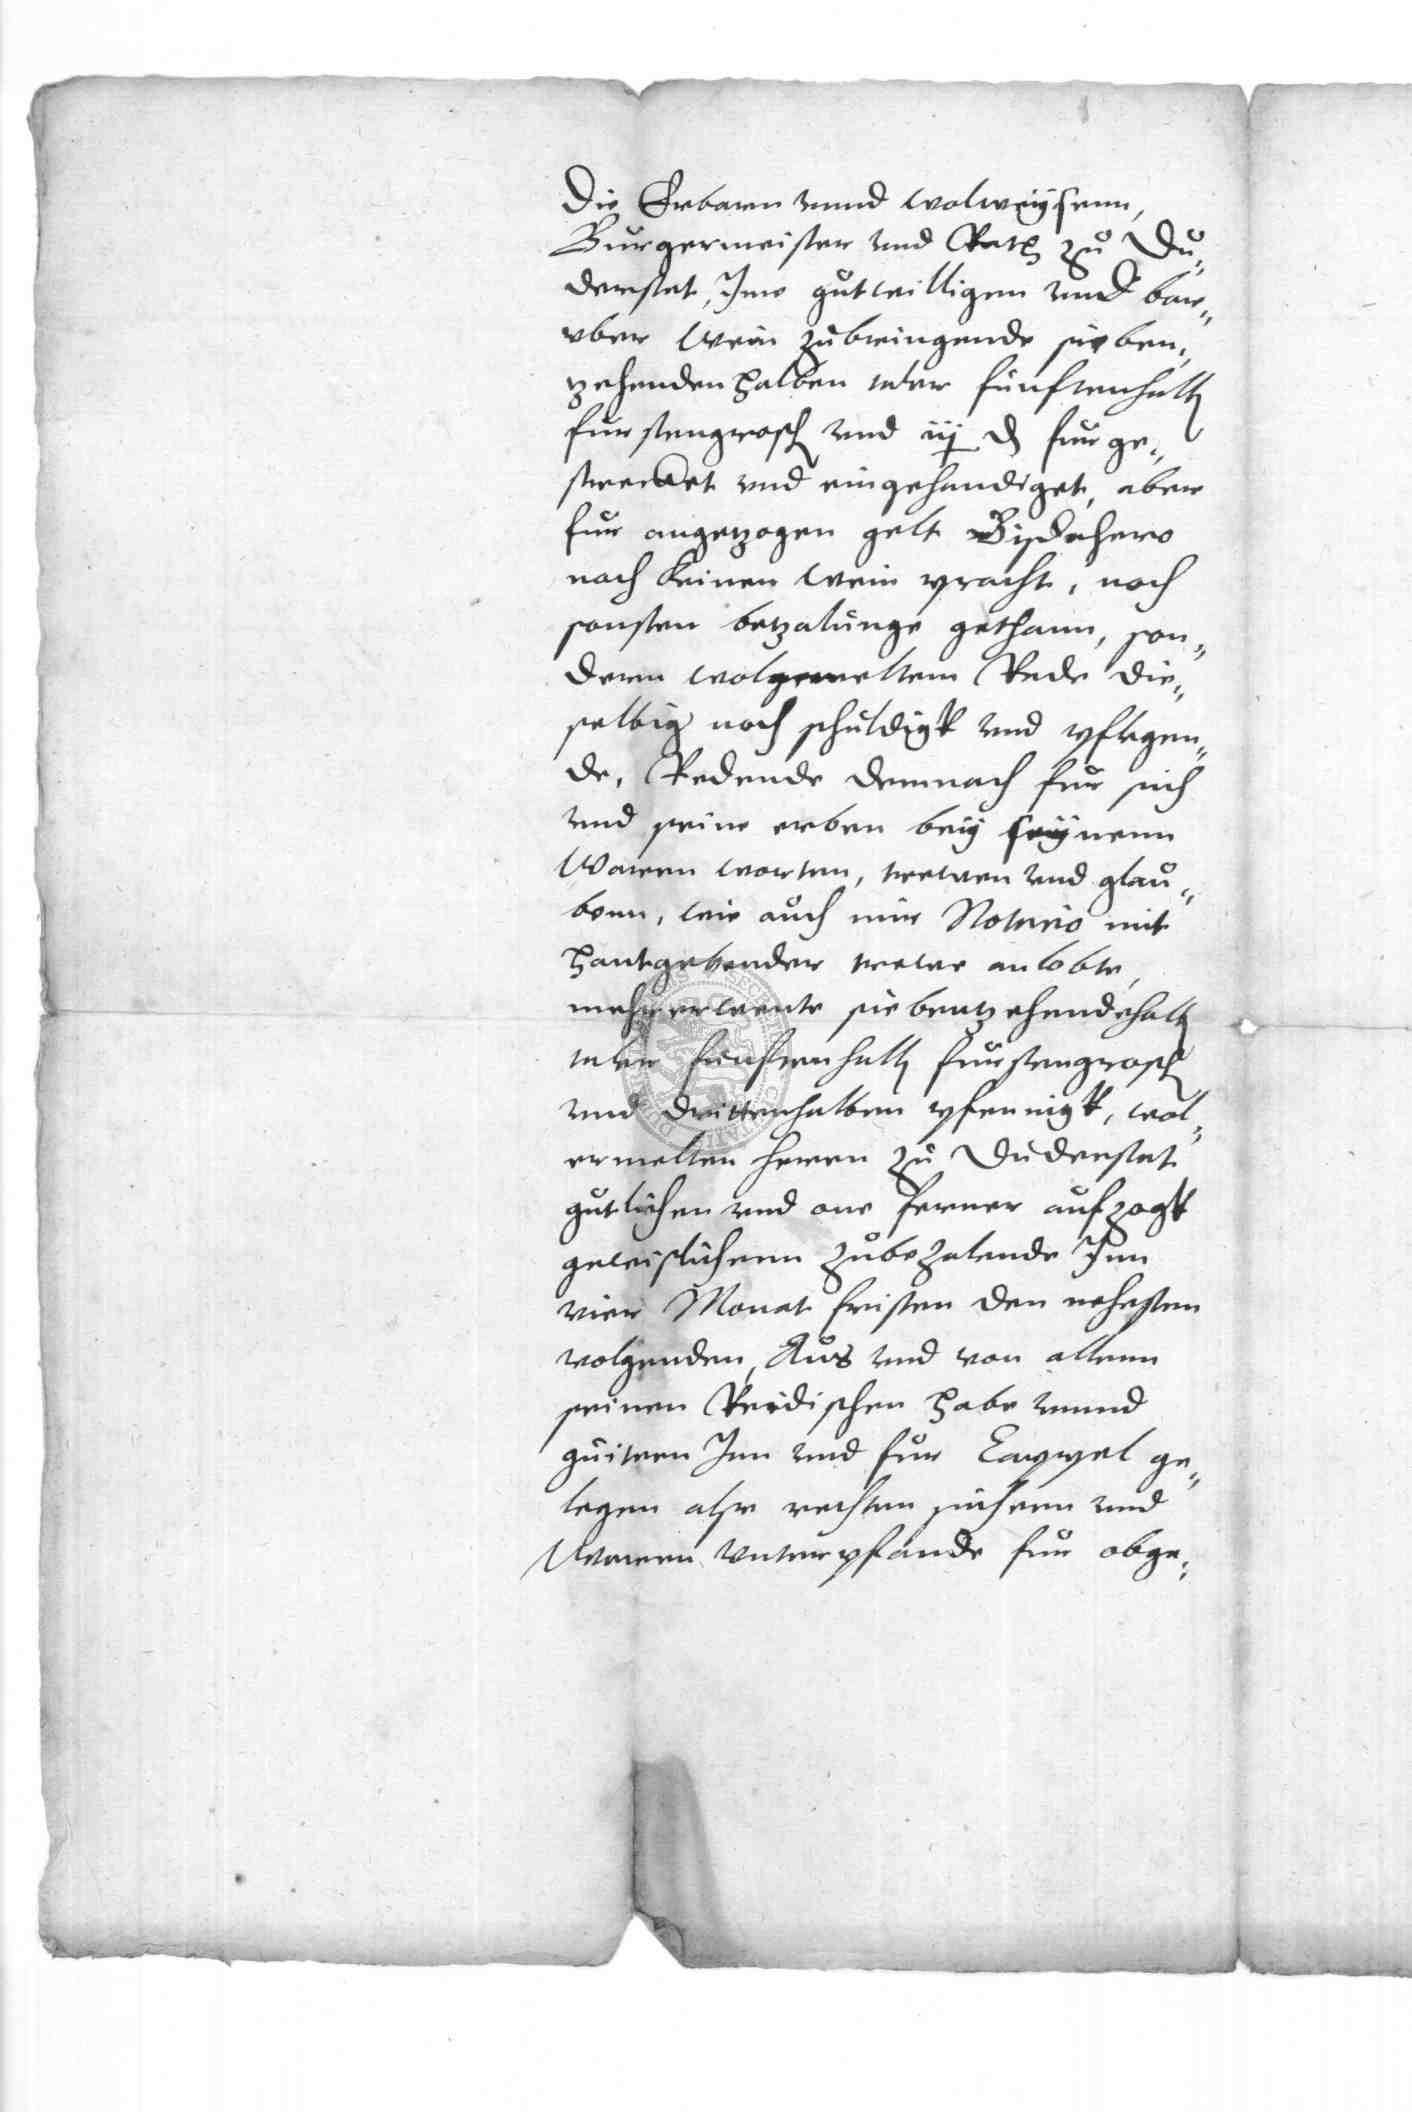 Die Erbarn vnnd wolweysenn,
Burgermeister vnd Rath zu Du„
derstat, Ime gutwilligen vnd bar„
vber wein zubringende sieben„
zehendenhalben taler funftenhalb
furstengrosch vnd iij d fur ge„
strecket vnd eingehandiget, aber
fur angezogen gelt Bisdahero
noch keinen wein pracht, noch
sonsten betzalunge gethann, son„
dern wolgemeltem Rade die„
selbig noch schuldigk vnd pflegen„
de, Redende demnach fur sich
vnd seine erben bey seynenn
Waren worten, trewen vnd glau„
benn, wie auch mir Notario mit
hantgebender trewe anlobte,
mehrerwente siebentzehendehalb
taler funftenhalb furstengrosch
vnd drittenhalben pfennigk, wol„
ermelten herrn zu Duderstat
gutlichen vnd one ferner aufzogk
gewislichenn zubezalende Inn
vier Monat fristen den nehesten
volgenden, Aus vnd von allenn
seinen Reidischen habe vnnd
guitern Inn vnd fur Cappel ge„
legen alse rechten sichern vnd
Waren vnterpfande fur obge„